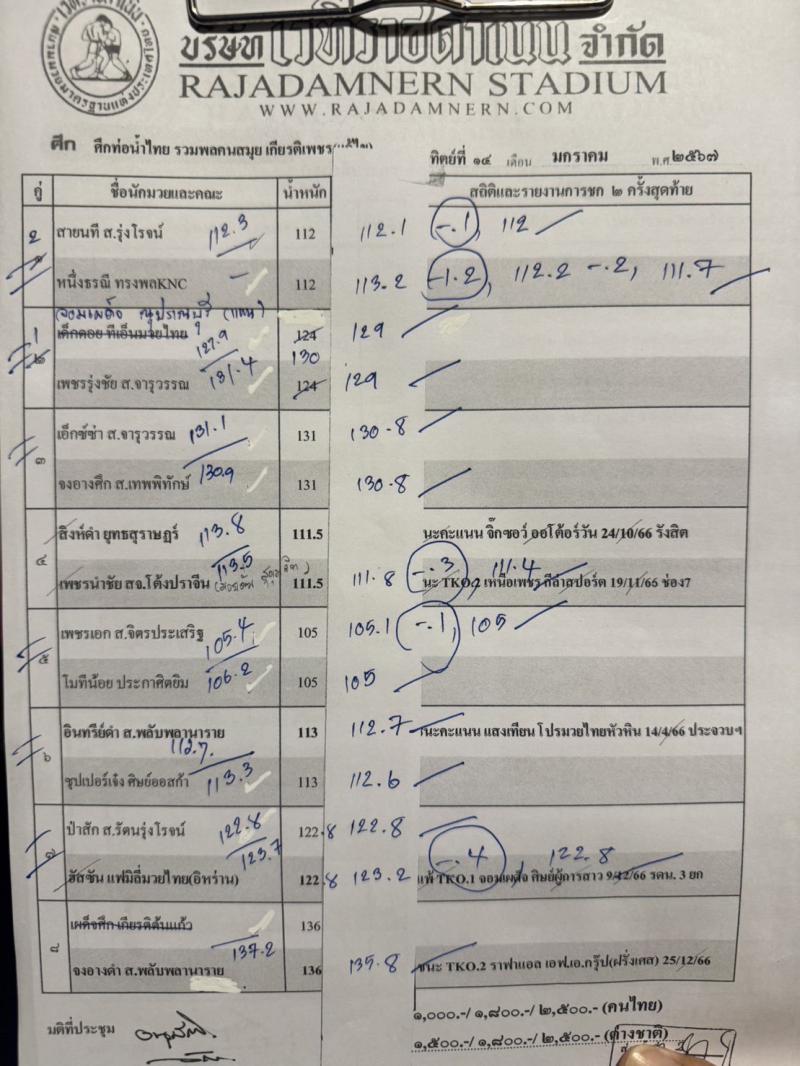 บริษัท เวทีราชดำเนิน จำกัด
RAJADAMNERN STADIUM
WWW.RAJADAMNERN.COM
ศึก ศึกท่อน้ำไทย รวมพลคนสมุย เกียรติเพชร
ทิตย์ที่ ๑๔ เดือน มกราคม พ.ศ. ๒๕๖๗
คู่ ชื่อนักมวยและคณะ น้ำหนัก สถิติและรายงานการชก ๒ ครั้งสุดท้าย
2 สายนที ส.รุ่งโรจน์ 112.3 112 112.1 -.1, 112
๑ หนึ่งธรณี ทรงพลKNC - 112 113.2 -1.2, 112.2 -.2, 111.7
จอมเผด็จ (แทน)
1 เด็กดอย ทีเอ็นมวยไทย 127.9 124 129
๒ 130
เพชรรุ่งชัย ส.จารุวรรณ 131.4 124 129
เอ็กซ์ซ่า ส.จารุวรรณ 131.1 131 130.8
๓
จงอางศึก ส.เทพพิทักษ์ 130.9 131 130.8
สิงห์ดำ ยุทธสุราษฎร์ 113.8 111.5 นะคะแนน จิ๊กซอว์ ออโต้อร์วัน 24/10/66 รังสิต
๔
เพชรนำชัย สจ.โต้งปราจีน 113.5 111.5 111.8 -.3 111.4 นะ TKO.2 เหนือเพชร กีล่าสปอร์ต 19/11/66 ช่อง7
เพชรเอก ส.จิตรประเสริฐ 105.4 105 105.1 -.1, 105
๕
โมทีน้อย ประกาศิตยิม 106.2 105 105
อินทรีย์ดำ ส.พลับพลานาราย 112.7 113 112.7 นะคะแนน แสงเทียน โปรมวยไทยหัวหิน 14/4/66 ประจวบฯ
๖
ซุปเปอร์เจ๋ง ศิษย์ออสก้า 113.3 113 112.6
ป่าสัก ส.รัตนรุ่งโรจน์ 122.8 122.8 122.8
๗
ฮัสซัน แฟมิลี่มวยไทย(อิหร่าน) 123.7 122.8 123.2 -.4, 122.8 แพ้ TKO.1 จอมเผด็จ ศิษย์ผู้การสาว 9/12/66 รดน. 3 ยก
เผด็จศึก เกียรติต้นแก้ว 136
๘
จงอางดำ ส.พลับพลานาราย 137.2 136 135.8 ชนะ TKO.2 ราฟาแอล เอฟ.เอ.กรุ๊ป(ฝรั่งเศส) 25/12/66
มติที่ประชุม
๑,๐๐๐.-/ ๑,๘๐๐.-/ ๒,๕๐๐.- (คนไทย)
๑,๕๐๐.-/ ๑,๘๐๐.-/ ๒,๕๐๐.- (ต่างชาติ)